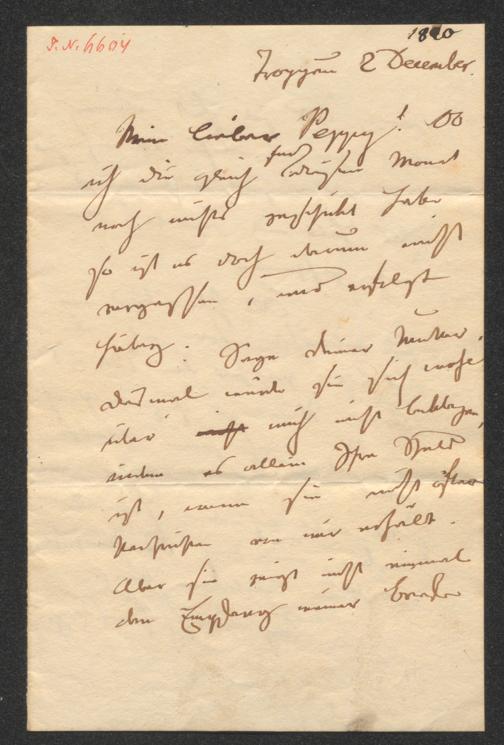 I. N. 6604
1820
Troppau 2 December.
Mein lieber Peppy! Ob
ich dir gleich für diesen Monat
noch nichts geschickt habe
so ist es doch darum nicht
vergessen, und erfolgt
hiebey. Sage deiner Mutter,
dasmal würde sie sich wohl
über mich nicht beklagen,
indem es allein Ihre Schuld
ist, wenn sie nicht öfter
Nachrichten von mir erhält.
Aber sie zeigt nicht einmal
den Empfang meiner Briefe